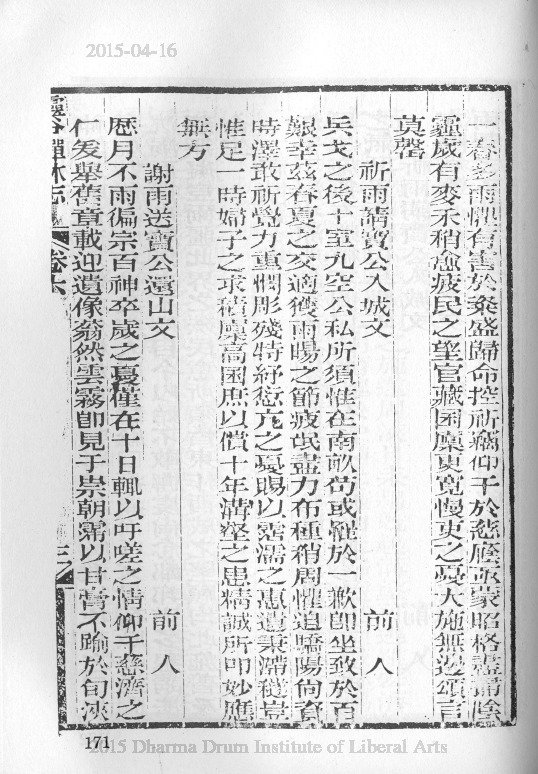 2015-04-16
一春多雨懼有害於粢盛歸命控祈竊仰干於慈廕亟蒙昭格盡掃陰
霾歲有麥禾稍愈疲民之望官藏囷廩更寬慢吏之憂大施無邊頌言
莫罄
祈雨請寶公入城文 前人
兵戈之後十室九空公私所須惟在南畝苟或罹於一歉即坐致於百
艱幸茲春夏之交適獲雨暘之節疲氓盡力布種稍周懼迫驕陽尚賒
時澤敢祈覺力重憫彫殘特紓愆亢之憂賜以霑濡之惠遺秉滯穗豈
惟足一時婦子之求積廩高囷庶以償十年溝壑之患精誠所叩妙應
無方
謝雨送寶公還山文 前人
歷月不雨徧宗百神卒歲之憂僅在十日輒以吁嗟之情仰干慈濟之
仁爰舉舊章載迎遺像蓊然雲霧即見于崇朝霈以甘膏不踰於旬浹
靈谷禪林志 卷六
171
2015 Dharma Drum Institute of Liberal Arts